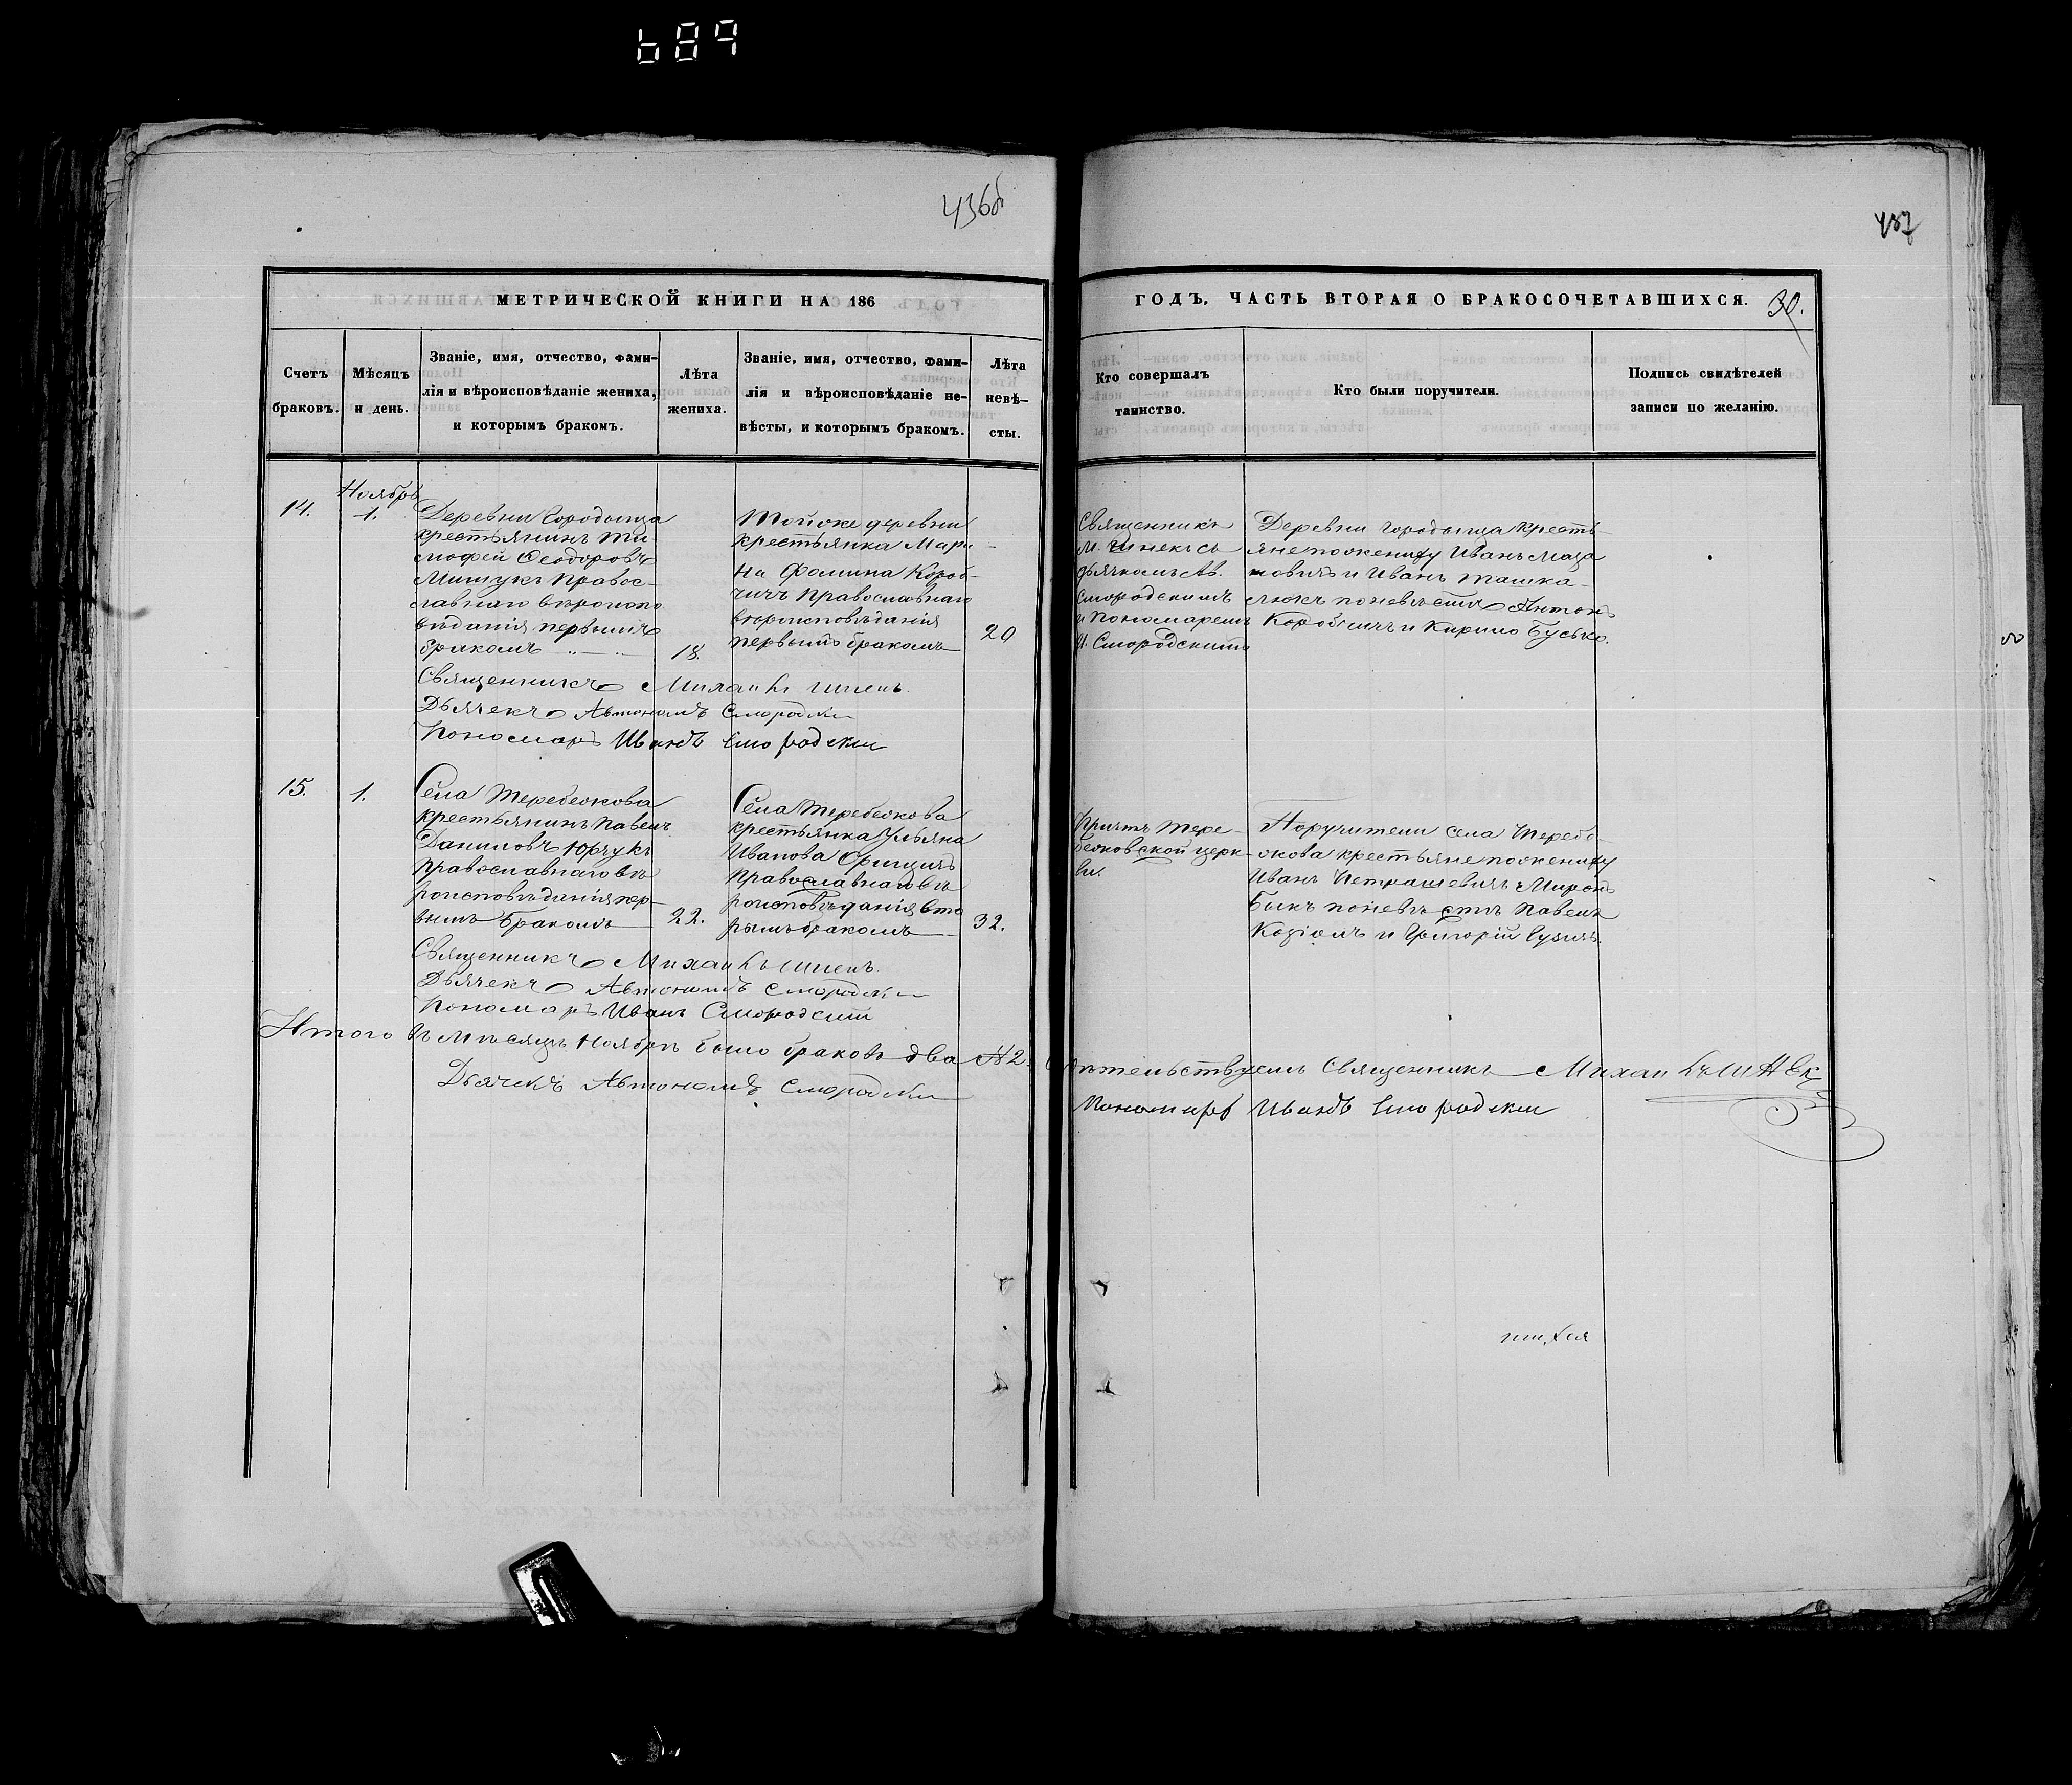 689
436б
437
МЕТРИЧЕСКОЙ КНИГИ НА 186
ГОДЪ, ЧАСТЬ ВТОРАЯ О БРАКОСОЧЕТАВШИХСЯ.
30.
Счетъ
браковъ.
Мѣсяцъ
и день.
Званіе, имя, отчество, фами-
лія и вѣроисповѣданіе жениха,
и которымъ бракомъ.
Лѣта
жениха.
Званіе, имя, отчество, фами-
лія и вѣроисповѣданіе не-
вѣсты, и которымъ бракомъ.
Лѣта
невѣ-
сты.
Кто совершалъ
таинство.
Кто были поручители.
Подпись свидѣтелей
записи по желанію.
14.
Ноябрь
1.
Деревни Городыща
крестьянинъ Ти-
мофей Ѳеодоровъ
Мишукъ Правос-
лавнаго вѣроиспо
вѣданія первымъ
бракомъ
18.
Тойже деревни
крестьянка Мари-
на Фомина Короб-
чичъ Православнаго
вѣроисповѣданія
первымъ бракомъ
20
Священникъ
М. съ
дьячкомъ Ав.
Смородскимъ
и Пономаремъ
И. Смородскимъ
Деревни Городыща кресть-
яне по жениху Иванъ
и Иванъ Ташка-
люкъ по невѣсте Антонъ
Коробчичъ и Кирило Бусько.
Священникъ Михаилъ
Дьячекъ Автономъ Смородски
Пономарь Иванъ Смородскии
15.
1.
Села Теребежова
крестьянинъ Павелъ
Даниловъ Юрчукъ
Православнаго вѣ
роисповѣданія пер-
вымъ бракомъ
22.
Села Теребежова
крестьянка Ульяна
Иванова
Православнаго вѣ
роисповѣданія вто
рымъ бракомъ
32.
Причтъ Тере-
бежовской церк-
ви.
Поручители села Теребе-
жова крестьяне по жениху
Иванъ Петрашевичъ и Миронъ
Быкъ по невѣсте Павелъ
Козіолъ и Григорій
Священникъ Михаилъ
Дьячекъ Автономъ Смородски
Пономарь Иванъ Смородский
Итого въ Месяцѣ Ноябрѣ было браковъ два № 2. Свидѣтельствуемъ Священникъ Михаилъ
Дьячекъ Автономъ Смородски
Пономарь Иванъ Смородскии